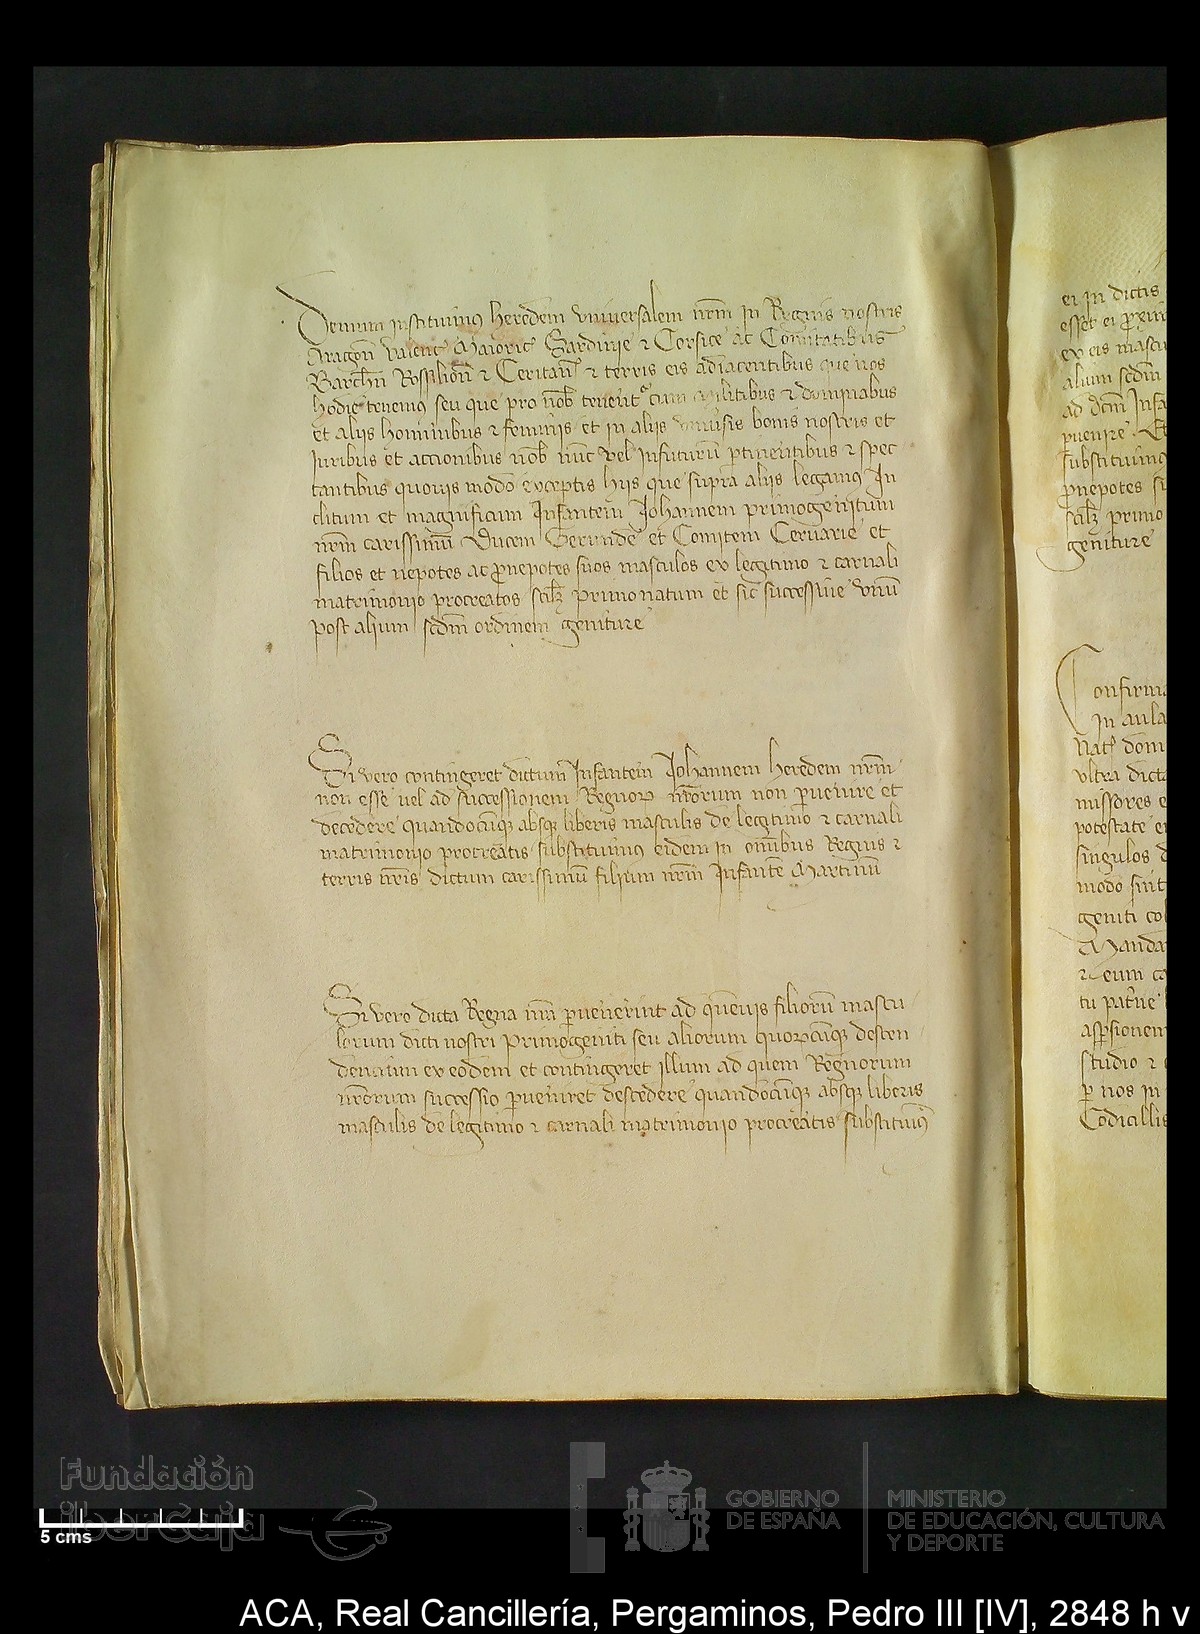 Demum instituimus heredem universalem nrm in Regnis nostris
Aragon Valent Maioric Sardinie & Corsice ac Comitatibus
Barchn Rossilion & Ceritan & terris eis adiacentibus que nos
hodie tenemus seu que pro nob tenent cum militibus & dominabus
et aliis hominibus & feminis et in aliis universis bonis nostris et
iuribus et accionibus nob nunc vel infuturu ptinentibus & spec
tantibus quovis modo exceptis hiis que supra aliis legamus In
clitum et magnificum Infantem Johannem primogenitum
nrm carissimu Ducem Gerunde et Comitem Cervarie et
filios et nepotes ac pnepotes suos masculos ex legitimo & carnali
matrimonio procreatos scilz primo natum et sic successive unu
post alium scdm ordinem geniture
Si vero contingeret dictum Infantem Johannem heredem nrm
non esse vel ad successionem Regnor nrorum non pvenire et
decedere quandocuq absq liberis masculis de legitimo & carnali
matrimonio procreatis substituimus eidem in omibus Regnis &
terris nris dictum carissimu filium nrm Infante Martinu
Si vero dicta Regna nra pvenerint ad quemvis filioru mascu
lorum dicti nostri Primogeniti seu aliorum quorcuq descen
dencium ex eodem et contingeret illum ad quem Regnorum
nrorum successio pveniret descedere quandocuq absq liberis
masculis de legitimo & carnali matrimonio procreatis substituim
ei in dictis
esset ei
ex eis mascu
alium scdm
ad dcm Infa
pvenire Et
substituimus
pnepotes su
scilz primo
geniture
Confirma
In aula
Nat domi
ultra dicta
missores e
potestate ei
singulos d
modo sint
geniti col
Manda
& eum ca
tu patne
aspsionem
studio & c
p nos in
Codicillis
Fundación
iberCaja
5 cms
GOBIERNO
DE ESPAÑA
MINISTERIO
DE EDUCACIÓN, CULTURA
Y DEPORTE
ACA, Real Cancillería, Pergaminos, Pedro III [IV], 2848 h v